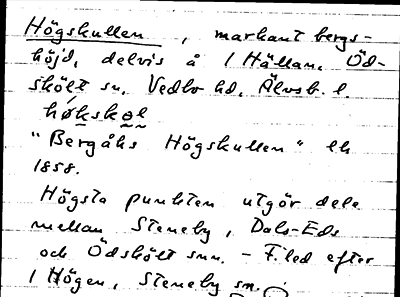 Högskullen, markant bergs-
höjd, delvis å 1 Hällan, Öd-
skölt sn, Vedbo hd, Älvsb. l.
høkskəl
"Bergåhs Högskullen" lh
1858.
Högsta punkten utgör dela
mellan Steneby, Dals-Eds
och Ödskölt snn. - F.led efter
1 Högen, Steneby sn.